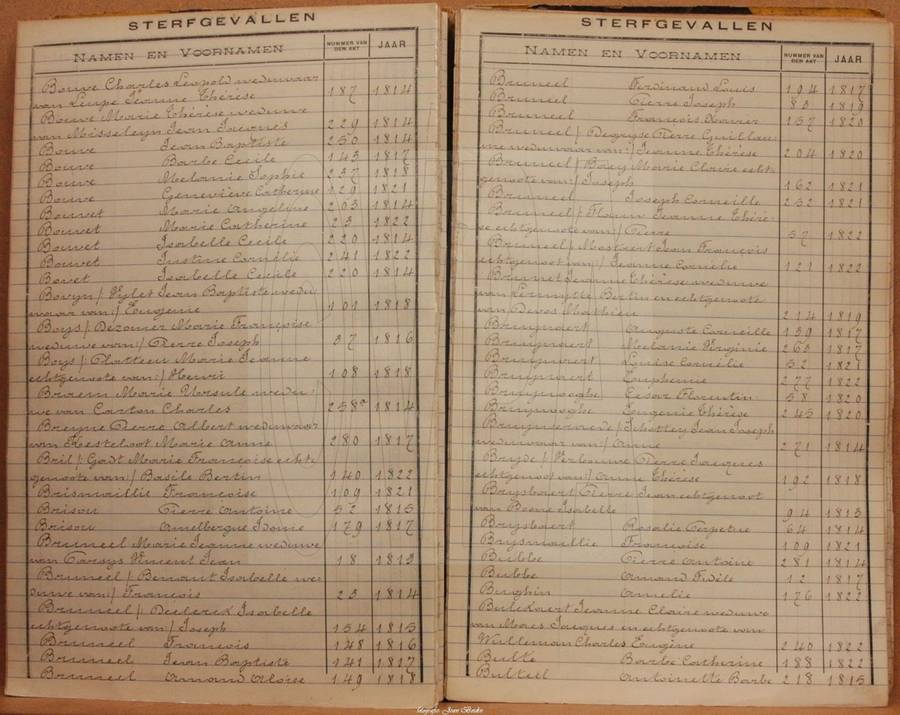 STERFGEVALLEN
NAMEN EN VOORNAMEN NUMMER VAN DEN AKT JAAR
Bouve Charles Léopold weduwaar
van Leupe Jeanne Thérèse 187 1814
Bouve Marie Thérèse weduwe
van Misseleyn Jean Jacques 229 1814
Bouve Jean Baptiste 250 1814
Bouve Barbe Cecile 143 1817
Bouve Melanie Sophie 237 1818
Bouve Geneviève Catherine 129 1821
Bouvet Marie Angéline 263 1814
Bouvet Marie Catherine 23 1822
Bouvet Isabelle Cecile 220 1814
Bouvet Justine Cornélie 241 1822
Bovet Isabelle Cecile 220 1814
Bovyn / Vylet Jean Baptiste wedu
waar van / Eugenie 101 1818
Boys / Dezomer Marie Françoise
weduwe van / Pierre Joseph 37 1816
Boys / Platteeu Marie Jeanne
echtgenoote van / Henri 108 1818
Braem Marie Ursule wedu
we van Carton Charles 258a 1814
Breyne Pierre Albert weduwaar
van Hesteloot Marie Anne 280 1817
Bril / Gadt Marie Françoise echt
genoote van / Basile Bertin 140 1822
Brismaillie Françoise 109 1821
Brisou Pierre Antoine 52 1815
Brisou Amelbergue Idonie 179 1817
Bruneel Marie Jeanne weduwe
van Vincent Jean 18 1813
Bruneel / Isabelle we
duwe van / François 23 1814
Bruneel / Dederck Isabelle
echtgenoote van / Joseph 154 1815
Bruneel François 148 1816
Bruneel Jean Baptiste 141 1817
Bruneel Amand Aloïse 149 1818
STERFGEVALLEN
NAMEN EN VOORNAMEN NUMMER VAN DEN AKT JAAR
Bruneel Ferdinand Louis 194 1817
Bruneel Pierre Joseph 83 1819
Bruneel François Xavier 157 1820
Bruneel / Dequyse Pierre Guillau
me weduwaar van / Jeanne Thérèse 204 1820
Bruneel / Marie Claire echt
genoote van / Joseph 162 1821
Bruneel Joseph Corneille 232 1821
Bruneel / Jeanne Thérè
se echtgenoote van / Pierre 57 1822
Bruneel / Mostaert Jean François
echtgenoot van / Jeanne Cornélie 121 1822
Brunet Jeanne Thérèse weduwe
van Lermytte Bertin en echtgenoote
van Devos Mathieu 214 1819
Bruynaert Auguste Corneille 139 1817
Bruynaert Melanie Virginie 263 1817
Bruynaert Louise Cornélie 52 1821
Bruynaert Euphemie 277 1822
Bruynooghe Cesar Florentin 58 1820
Bruynooghe Eugenie Thérèse 245 1820
Jean Joseph
weduwaar van / Anne 271 1814
Bryde / Verlouwe Pierre Jacques
echtgenoot van / Anne Thérèse 192 1818
Brysbaert Pierre Jean echtgenoot
van Isabelle 94 1813
Brysbaert Rosalie Perpetue 64 1814
Brysmaillie Françoise 109 1821
Bubbe Pierre Antoine 281 1814
Bubbe Amand Fidèle 12 1817
Bughin Amelie 176 1822
Bulckaert Jeanne Claire weduwe
van Maes Jacques en echtgenoote van
Wulleman Charles Eugène 240 1822
Bulte Barbe Catherine 188 1822
Bulteel Antoinette Barbe 218 1815